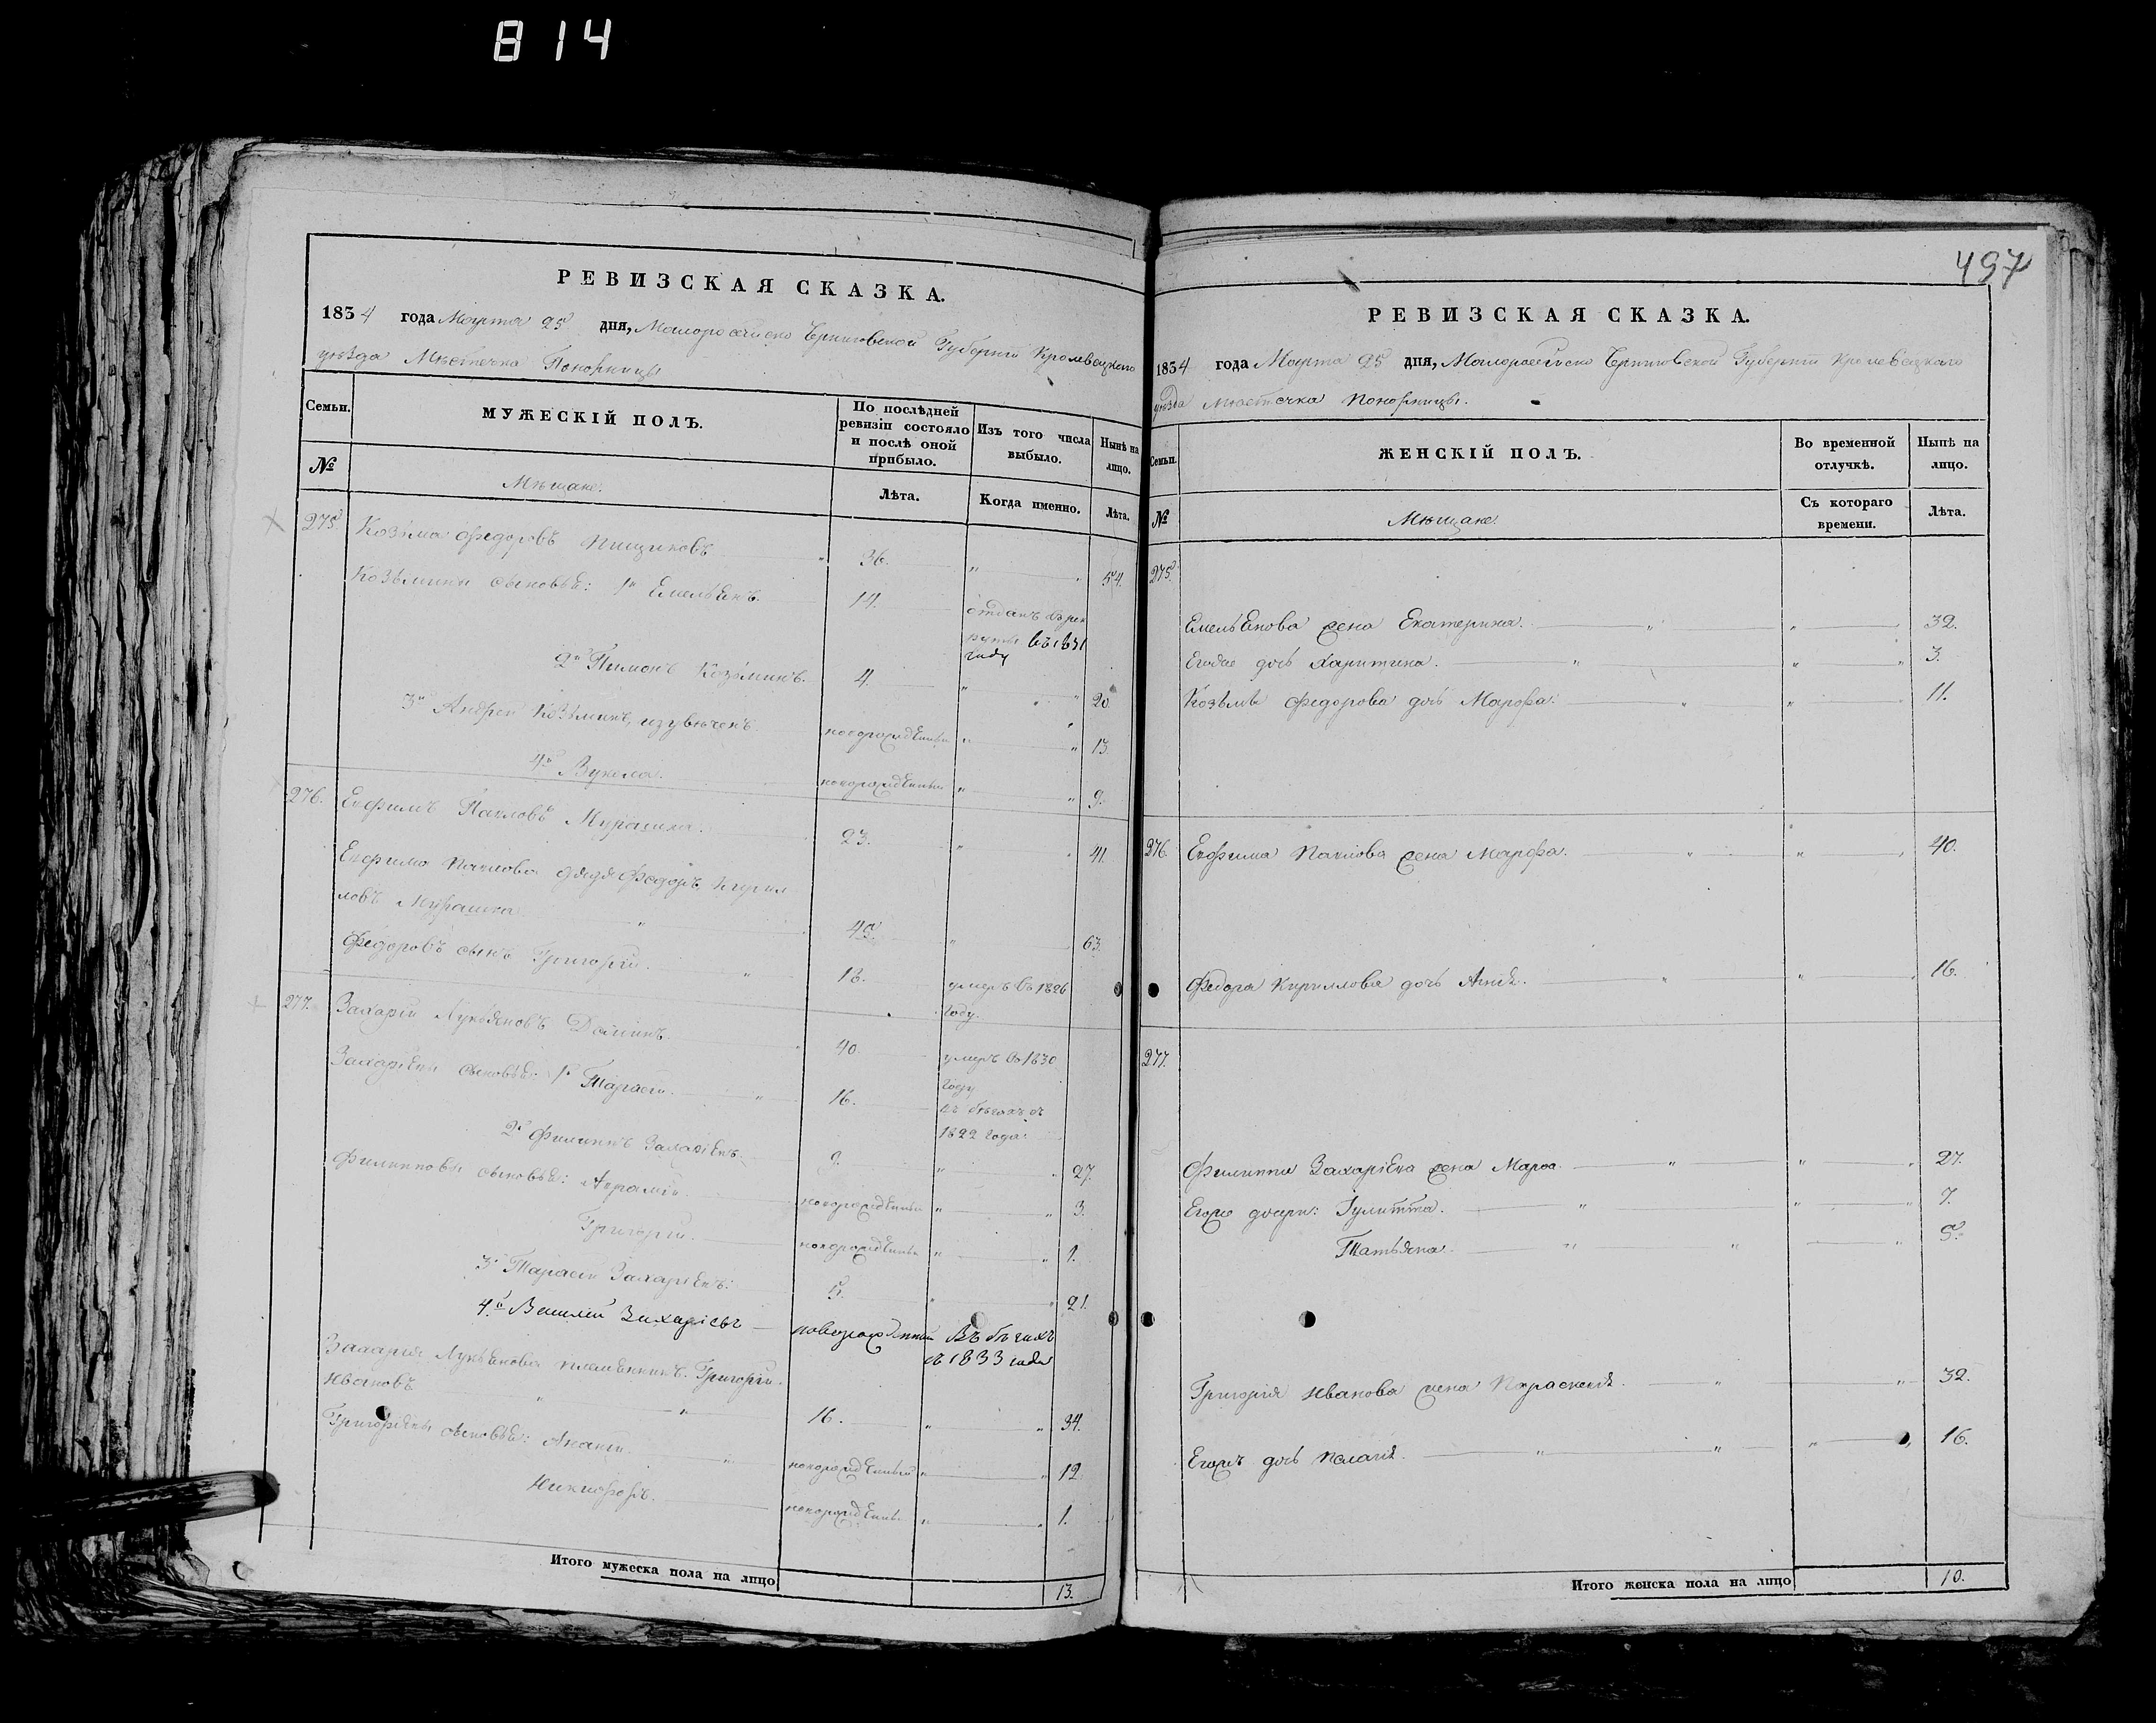 814
РЕВИЗСКАЯ СКАЗКА.
1834 года Марта 25 дня, Малоросейско Черниговской Губернии Кролевецкаго
уѣзда Мѣстечка Понорницы
Семьи. МУЖЕСКІЙ ПОЛЪ. По послѣдней ревизіи состояло и послѣ оной прибыло. Изъ того числа выбыло. Нынѣ на лицо.
№ Мѣщане. Лѣта. Когда именно. Лѣта.
275 Козьма Федоровъ Пищиковъ 36. " " 54.
Козьмины сыновья: 1й Емельянъ. 14. отданъ въ рек
руты въ 1831
году
2й Пимонъ Козьминъ. 4. " " 20
3й Андрей Козьминъ, изувѣченъ. новорожденный " " 13.
4й Вукола. новорожденный " " 9.
276. Евфимъ Павловъ Мурашка. 23. " " 41.
Евфима Павлова дядя Федоръ Кирил
ловъ Мурашка " 45. " 63.
Федоровъ сынъ Григорій. " 18. умеръ въ 1826
году.
277. Захарій Лукьяновъ 40. умеръ въ 1830
году
Захаріевы сыновья: 1й Тарасій. " 16. въ бѣгахъ съ
1822 года.
2й Филиппъ Захаріевъ. 9. " " 27.
Филипповы сыновья: Аврамій. новорожденный " " 3.
Григорій. новорожденный " " 1.
3й Тарасій Захаріевъ. " " 21.
4й Василій Захаріевъ новорожденный Въ бѣгахъ
съ 1833 года
Захарія Лукьянова племянникъ Григорій
Ивановъ " " 16. " " 34.
Григорьевы сыновья: Ананій. " новорожденный " " 12
Никифоръ. новорожденный " " 1.
Итого мужеска пола на лицо 13.
497
РЕВИЗСКАЯ СКАЗКА.
1834 года Марта 25 дня, Малоросейско Черниговской Губерніи Кролевецкаго
уѣзда мѣстечка Понорницы.
Семьи. ЖЕНСКІЙ ПОЛЪ. Во временной отлучкѣ. Нынѣ на лицо.
№ Мѣщане. Съ котораго времени. Лѣта.
275.
Емельянова жена Екатерина. " " 32.
Егоже дочь Харитина. " " " 3.
Козьмы Федорова дочь Марфа. " " " 11.
276. Евфима Павлова жена Марфа. " " " 40.
Федора Кириллова дочь Анна. " " " 16.
277.
Филиппа Захаріева жена Марфа. " " " 27.
Егоже дочери: Іулитта. " " " 7.
Татьяна. " " " 5.
Григорія Иванова жена Параскевія. " " 32.
Егожъ дочь Пелагія. " " " " 16.
Итого женска пола на лицо 10.